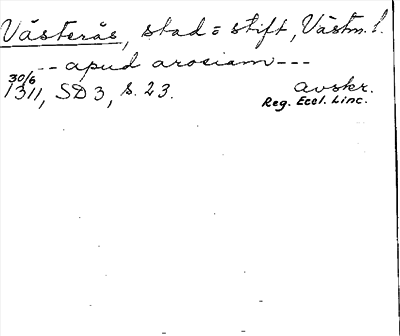 Västerås, stad = stift, Västm. l.
-- apud arosiam ---
30/6
1311, SD 3, s. 23. avskr.
Reg. Eccl. Linc.